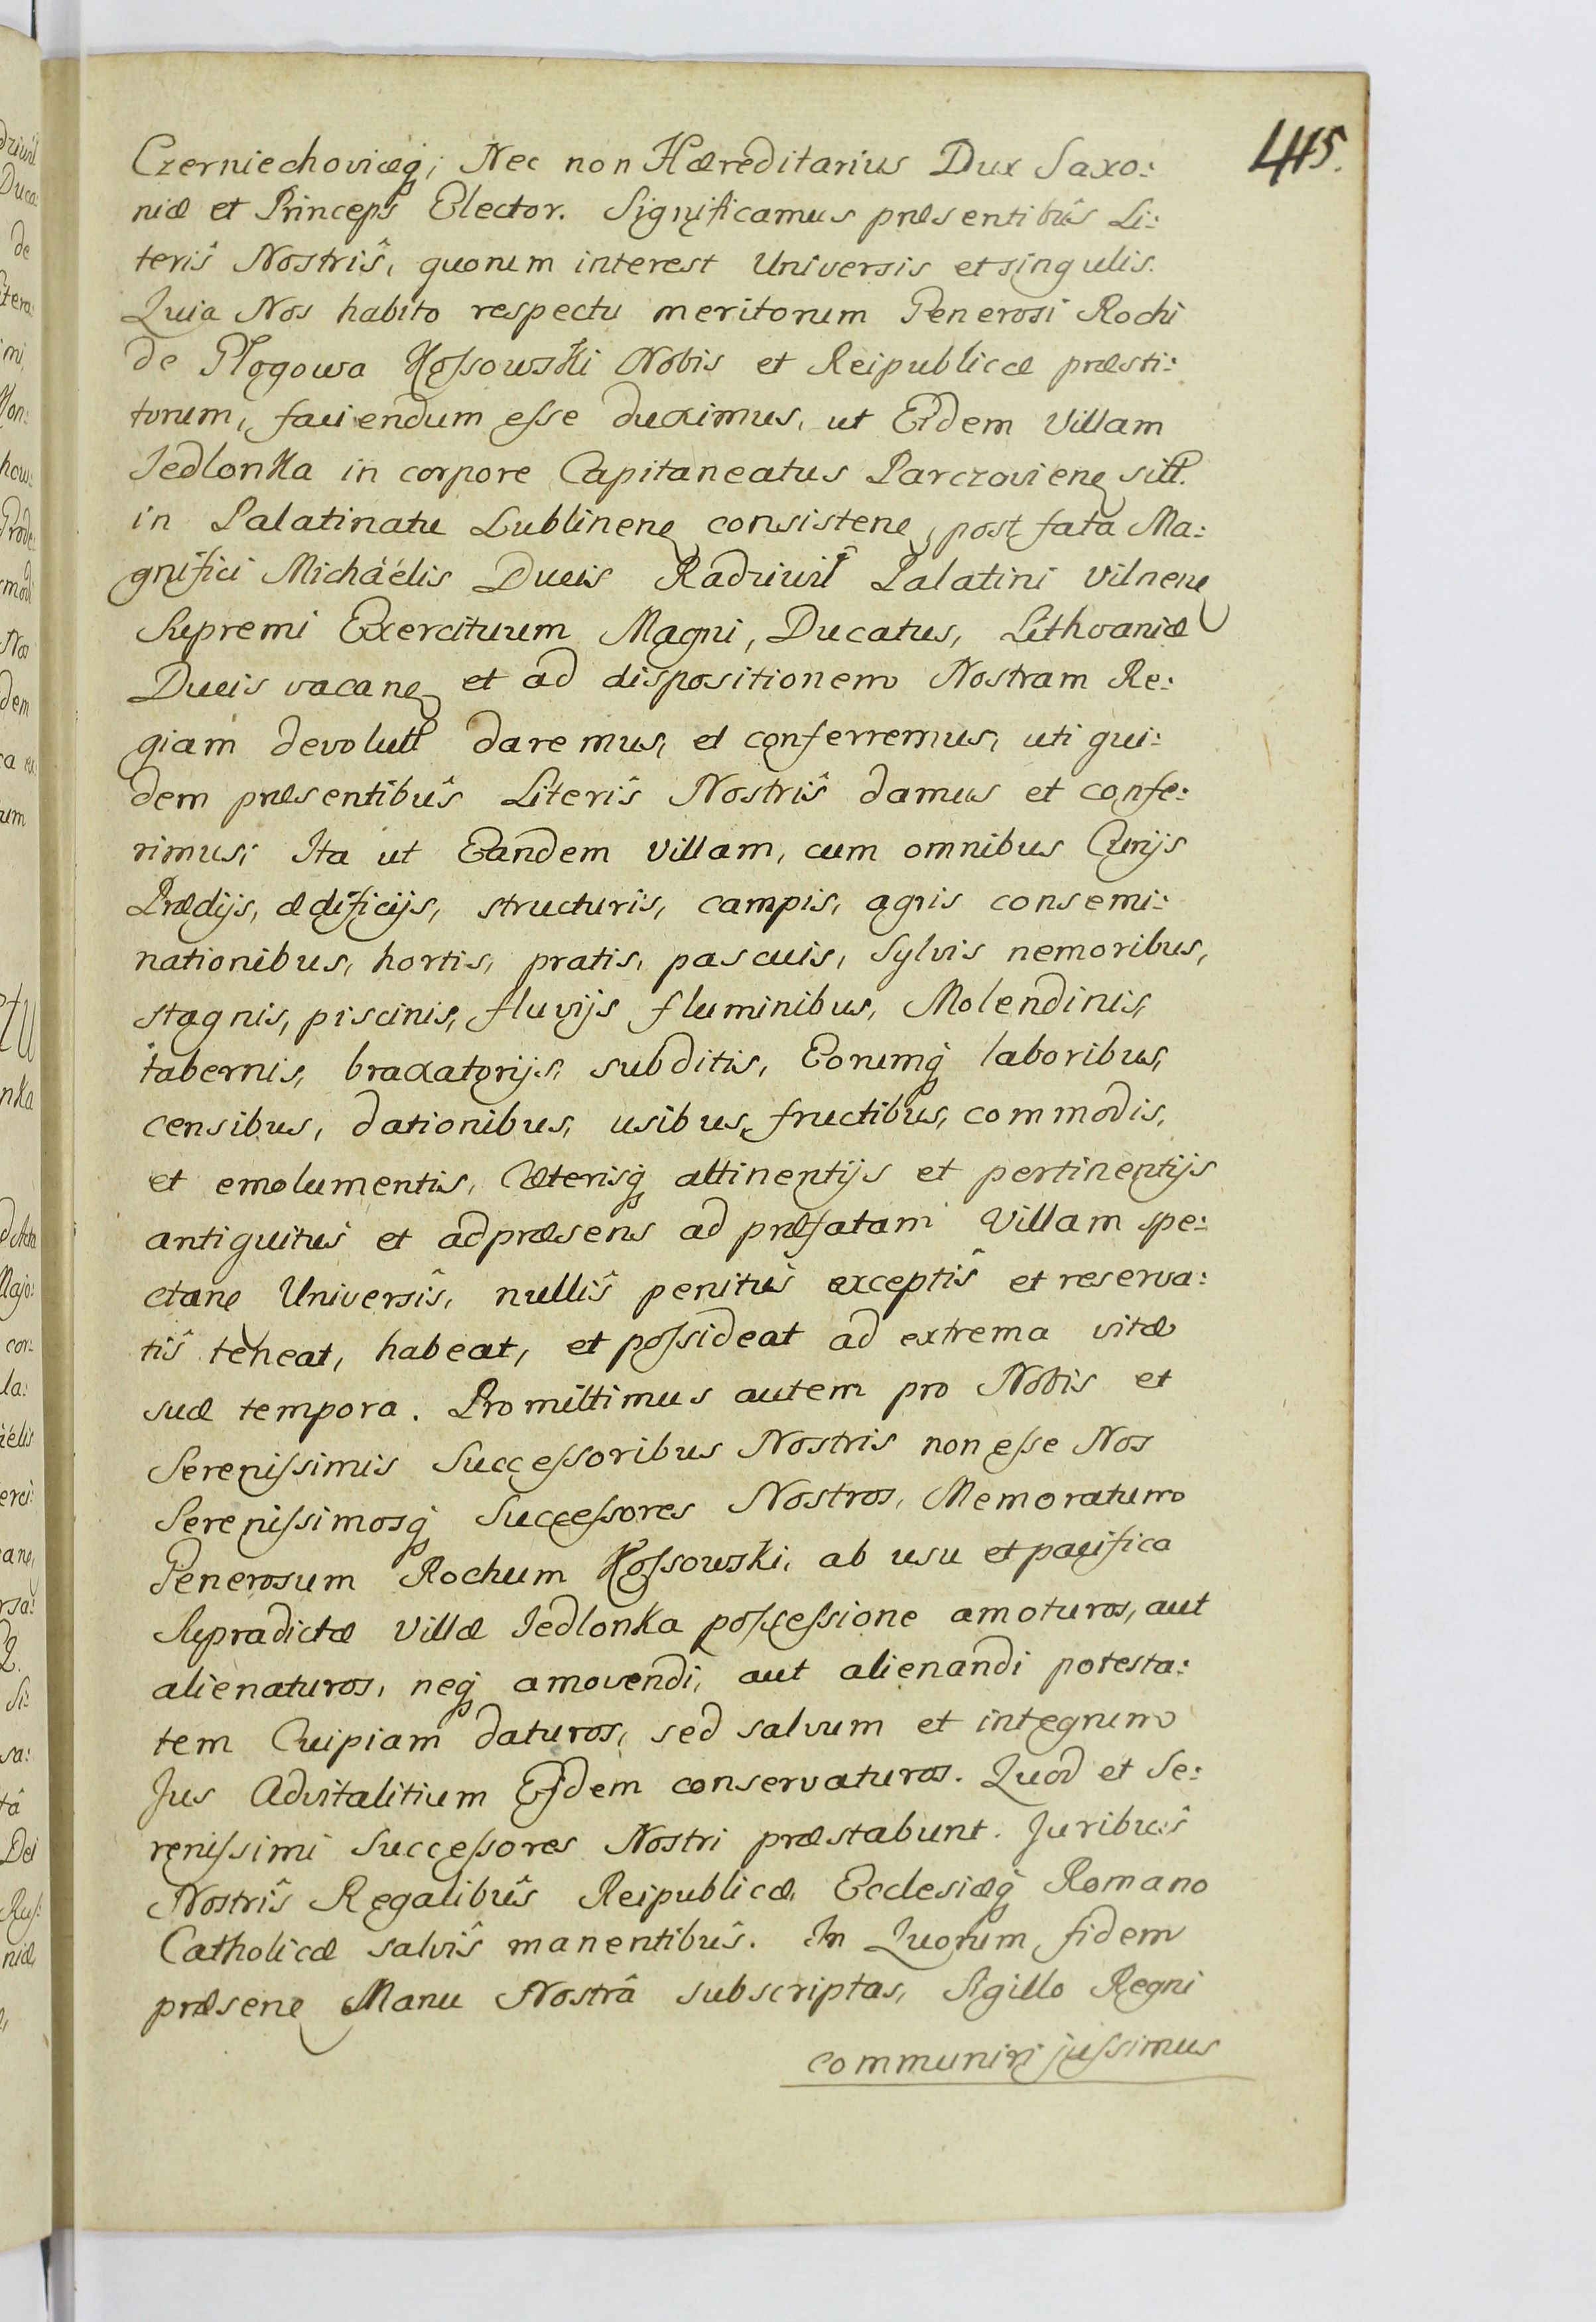 415.
Czerniechoviæq; Nec non Hæreditarius Dux Saxo:
niæ et Princeps Elector. Significamus præsentibûs Li:
terîs Nostrîs, quorum interest Universis et singulis.
Quia Nos habito respectu meritorum Generosi Rochi
de Głogowa Kossowski Nobis et Reipublicæ præsti:
torum, faciendum esse duximus, ut Eidem Villam
Jedlonka in corpore Capitaneatus Parczovien sitt.
in Palatinatu Lublinen consisten, post fata Ma:
gnifici Michaélis Ducis Radziwił Palatini Vilnen
Supremi Exercituum Magni, Ducatus, Lithvaniæ
Ducis vacan et ad dispositionem Nostram Re:
giam devolutt daremus, et conferremus, uti qui:
dem præsentibûs Literîs Nostrîs damus et confe:
rimus; Ita ut Eandem Villam, cum omnibus Curijs
Prædijs, ædificijs, structuris, campis, agris consemi:
nationibus, hortis, pratis, pascuis, Sylvis nemoribus,
stagnis, piscinis, fluvijs fluminibus, Molendinis,
tabernis, braxatorijs, subditis, Eorumq laboribus,
censibus, dationibus, usibus, fructibus, commodis,
et emolumentis, Cæterisq attinentijs et pertinentijs
antiquitus et adpræsens ad præfatam Villam spe:
ctan Universîs, nullîs penitus exceptîs et reserva:
tîs teneat, habeat, et possideat ad extrema vitæ
suæ tempora. Promittimus autem pro Nobis et
Serenissimis Successoribus Nostris non esse Nos
Serenissimosq Successores Nostros, Memoratum
Generosum Rochum Kossowski, ab usu et pacifica
Supradictæ Villæ Jedlonka possessione amoturos, aut
alienaturos, neq amovendi, aut alienandi potesta:
tem Cuipiam daturos, sed salvum et integrum
Jus Advitalitium Ejdem conservaturos. Quod et Se:
renissimi Successores Nostri præstabunt. Juribûs
Nostrîs Regalibûs Reipublicæ, Ecclesiæq Romano
Catholicæ salvîs manentibûs. In Quorum fidem
præsen Manu Nostrâ subscriptas, Sigillo Regni
communiri jussimus